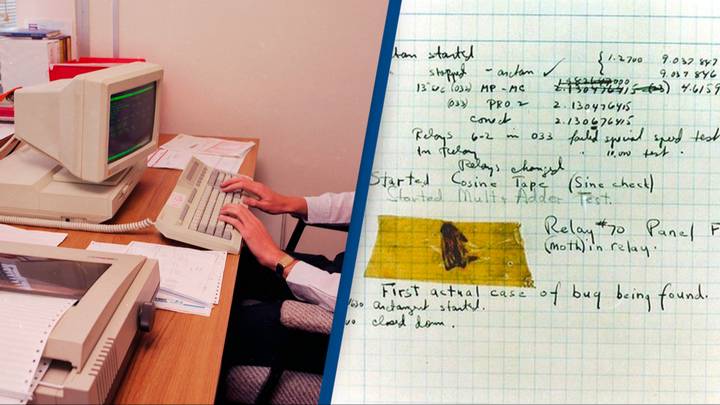 started
{ 1.2700 9.037 847
stopped - arctan ✓ 9.037 846
13" MP - MC 2.130476415 4.6159
(033) PRO 2 2.130476415
correct 2.130676415
Relays 6-2 in 033 failed special speed test
In Relay " 10.000 test .
Relays changed
Started Cosine Tape (Sine check)
Started Mult + Adder Test.
Relay #70 Panel F
(moth) in relay.
First actual case of bug being found.
arctangent started.
closed down.